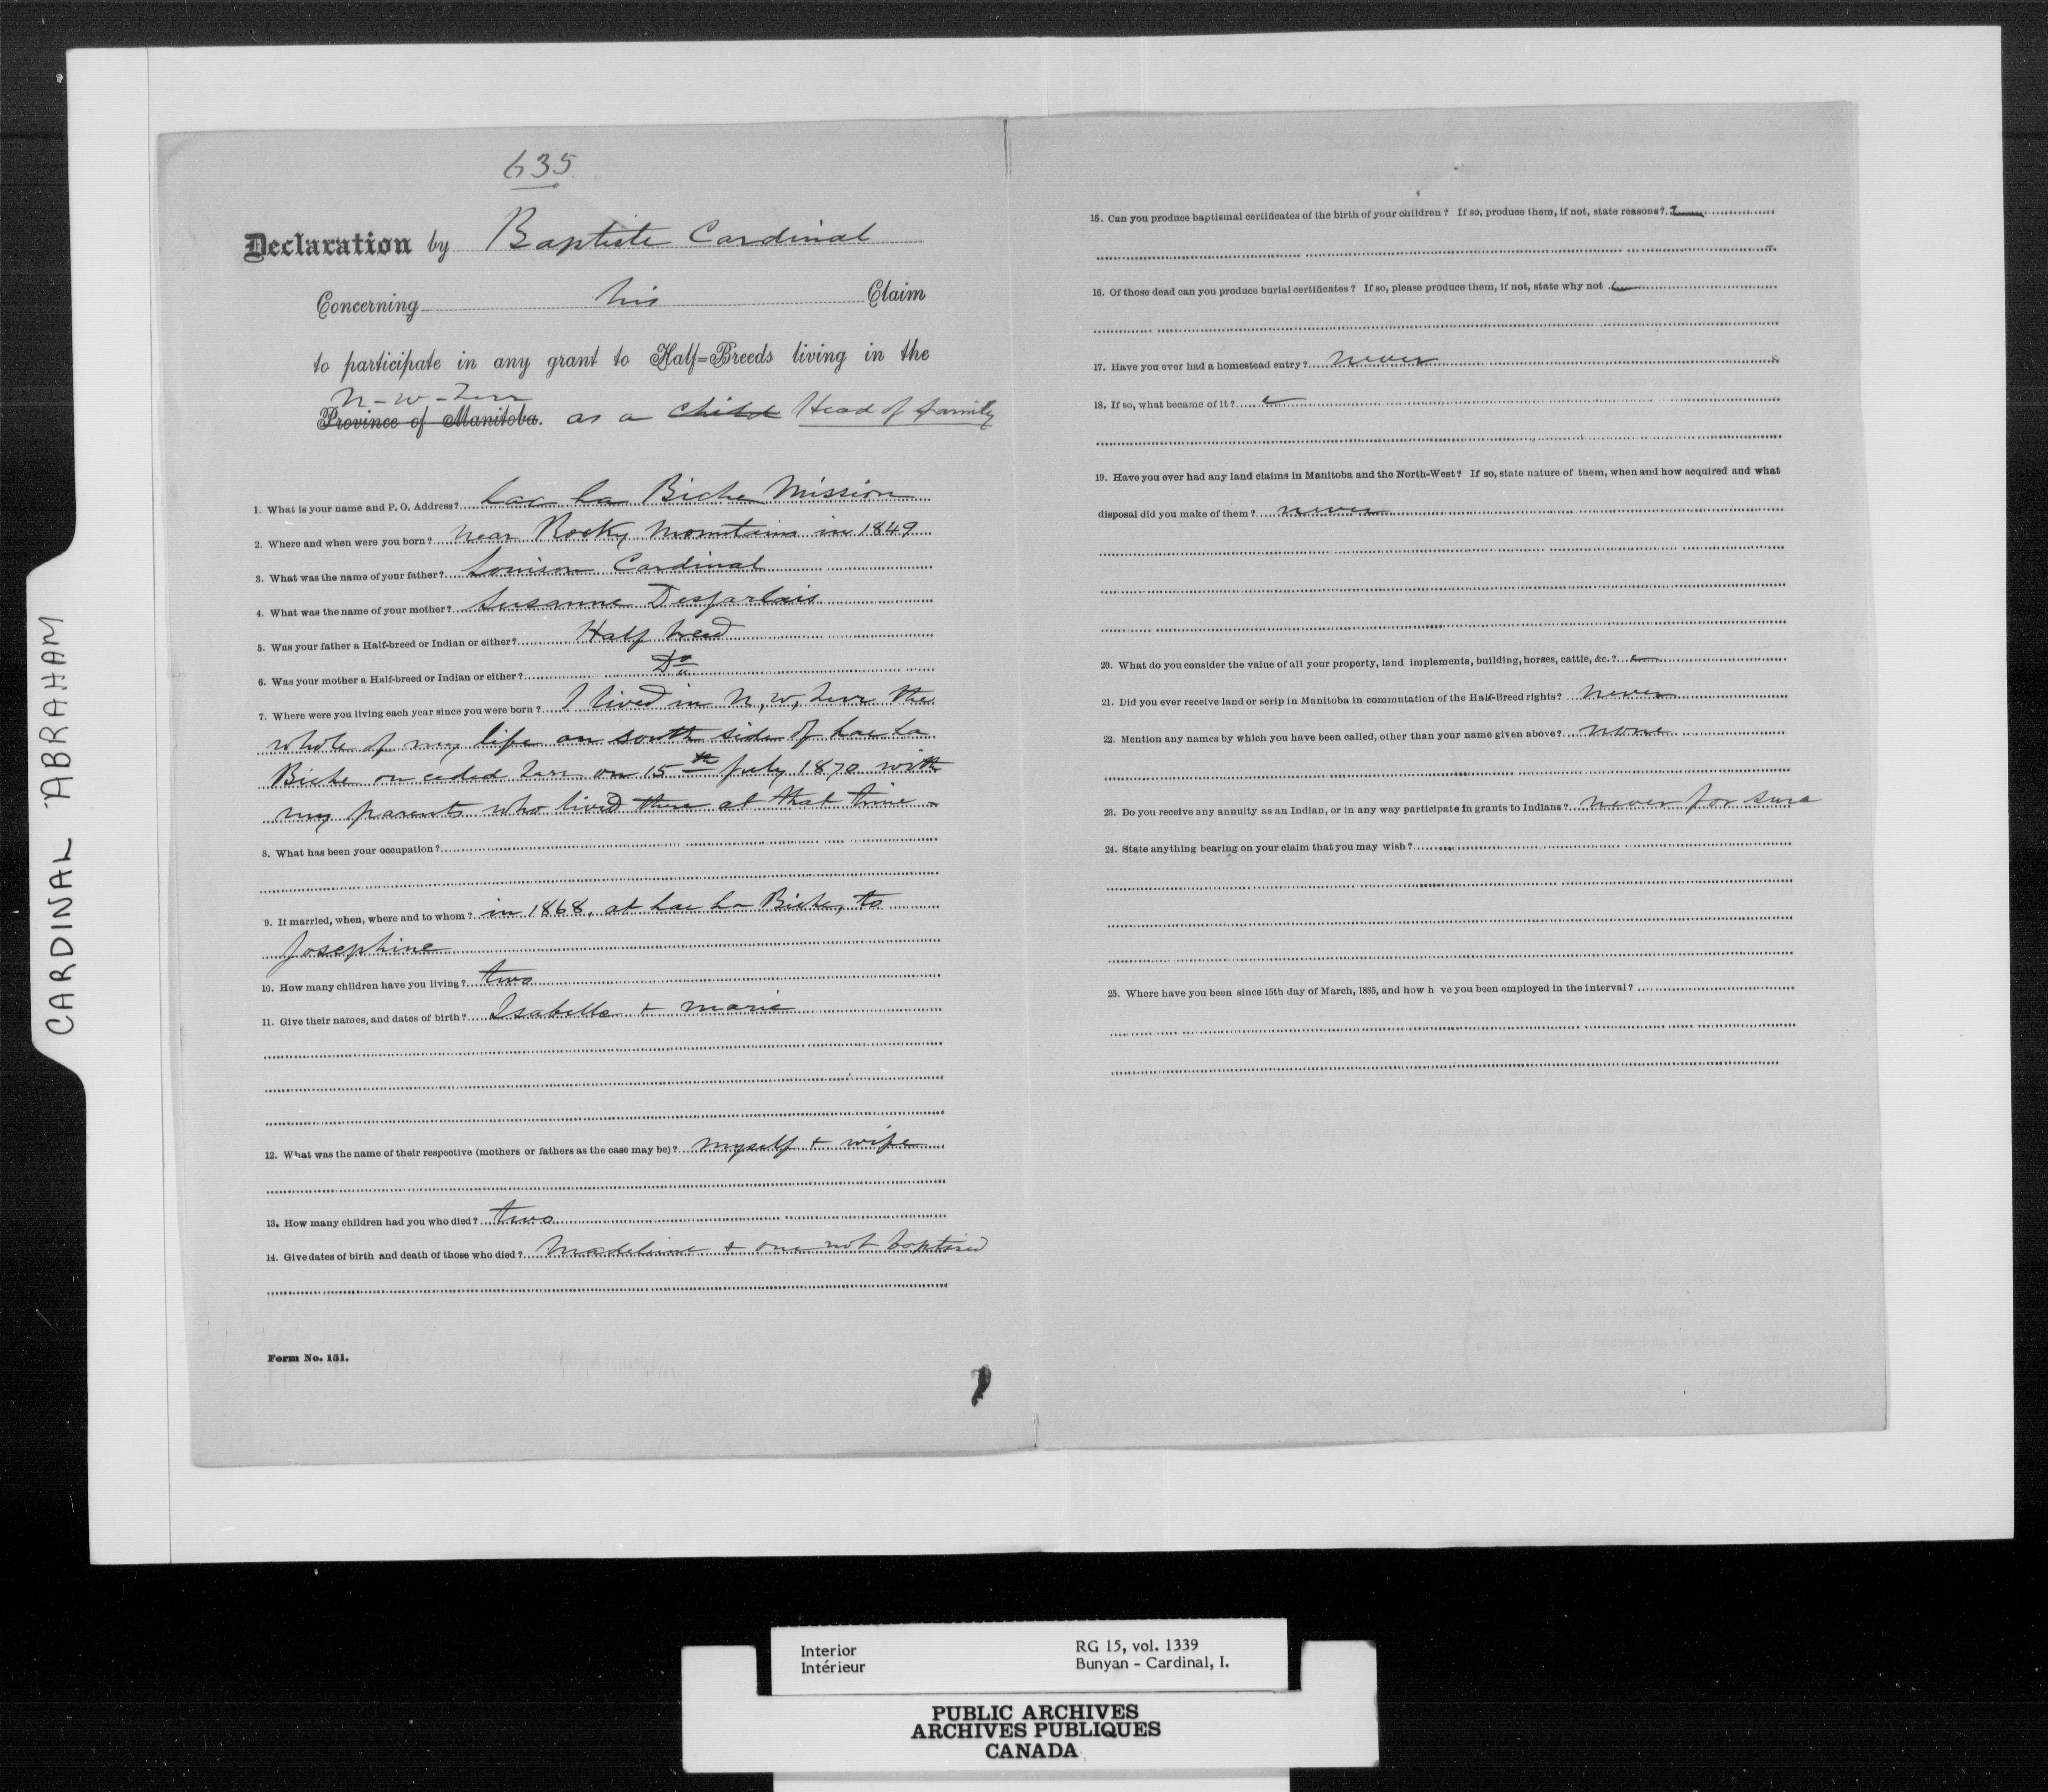 CARDINAL ABRAHAM
635
Declaration by Baptiste Cardinal
Concerning his Claim
to participate in any grant to Half=Breeds living in the
N-W-Terr
Province of Manitoba. as a Child Head of family
1. What is your name and P. O. Address? Lac La Biche Mission
2. Where and when were you born? Near Rocky Mountains in 1849
3. What was the name of your father? Louison Cardinal
4. What was the name of your mother? Susanne Desjarlais
5. Was your father a Half-breed or Indian or either? Half breed
6. Was your mother a Half-breed or Indian or either? Do
7. Where were you living each year since you were born? I lived in N, W, Terr the
whole of my life on south side of Lac La
Biche on ceded Terr on 15th July 1870 with
my parents who lived there at that time -
8. What has been your occupation?
9. If married, when, where and to whom? in 1868, at Lac La Biche, to
Josephine
10. How many children have you living? two
11. Give their names, and dates of birth? Isabelle + Marie
12. What was the name of their respective (mothers or fathers as the case may be)? myself + wife
13. How many children had you who died? two
14. Give dates of birth and death of those who died? Madeline + one not baptised
Form No. 151.
15. Can you produce baptismal certificates of the birth of your children? If so, produce them, if not, state reasons?
16. Of those dead can you produce burial certificates? If so, please produce them, if not, state why not
17. Have you ever had a homestead entry? never
18. If so, what became of it?
19. Have you ever had any land claims in Manitoba and the North-West? If so, state nature of them, when and how acquired and what
disposal did you make of them? never
20. What do you consider the value of all your property, land implements, building, horses, cattle, &c.?
21. Did you ever receive land or scrip in Manitoba in commutation of the Half-Breed rights? Never
22. Mention any names by which you have been called, other than your name given above? none
23. Do you receive any annuity as an Indian, or in any way participate in grants to Indians? never for sure
24. State anything bearing on your claim that you may wish?
25. Where have you been since 15th day of March, 1885, and how h ve you been employed in the interval?
Interior RG 15, vol. 1339
Intérieur Bunyan - Cardinal, I.
PUBLIC ARCHIVES
ARCHIVES PUBLIQUES
CANADA